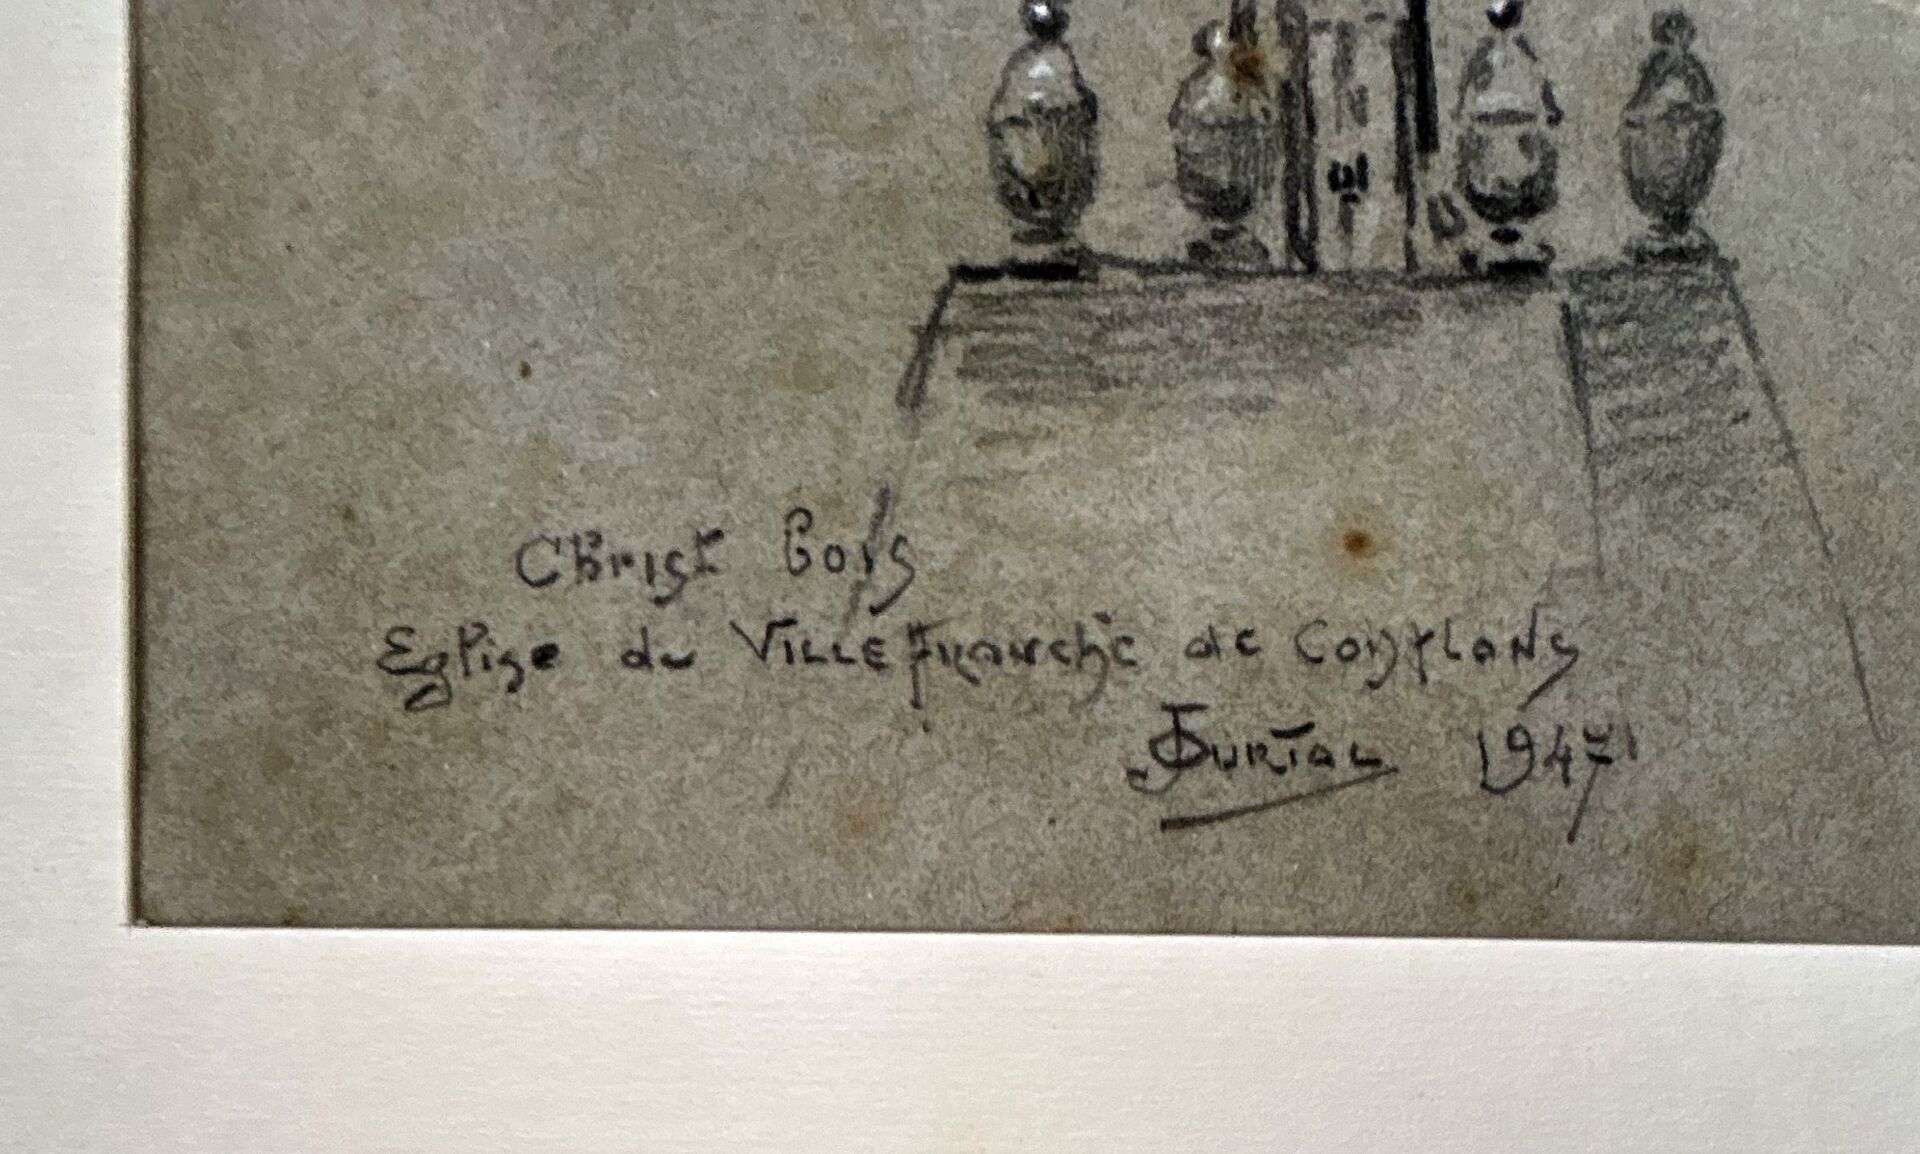 Christ Bois
Eglise du VILLEfranche de Conflans
1947